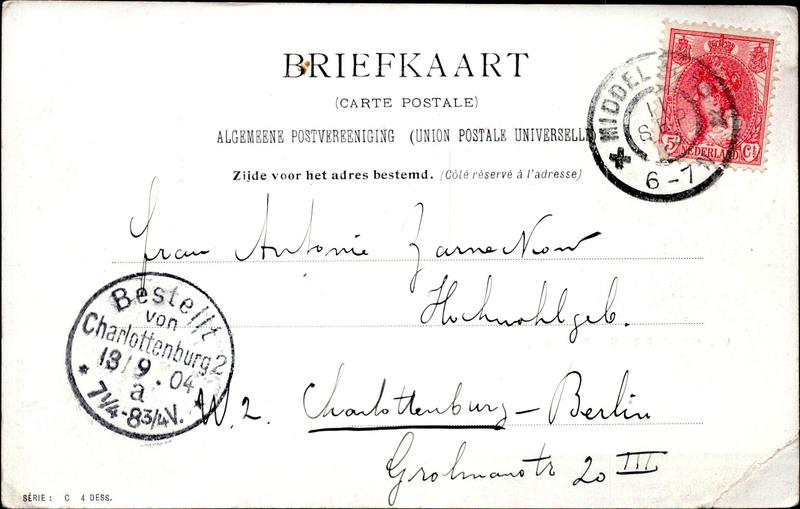 BRIEFKAART
(CARTE POSTALE)
ALGEMEENE POSTVEREENIGING (UNION POSTALE UNIVERSELLE)
Zijde voor het adres bestemd. (Côté réservé à l'adresse)
MIDDEL
SEP
6-7
5 NEDERLAND Ct
Frau Antonie Zarneckow
Hochwohlgeb.
W. 2. Charlottenburg - Berlin
Grolmanstr 20 III
Bestellt
von
Charlottenburg 2
13/9.04
a
* 7¼-8¾V. *
SÉRIE: C 4 DESS.